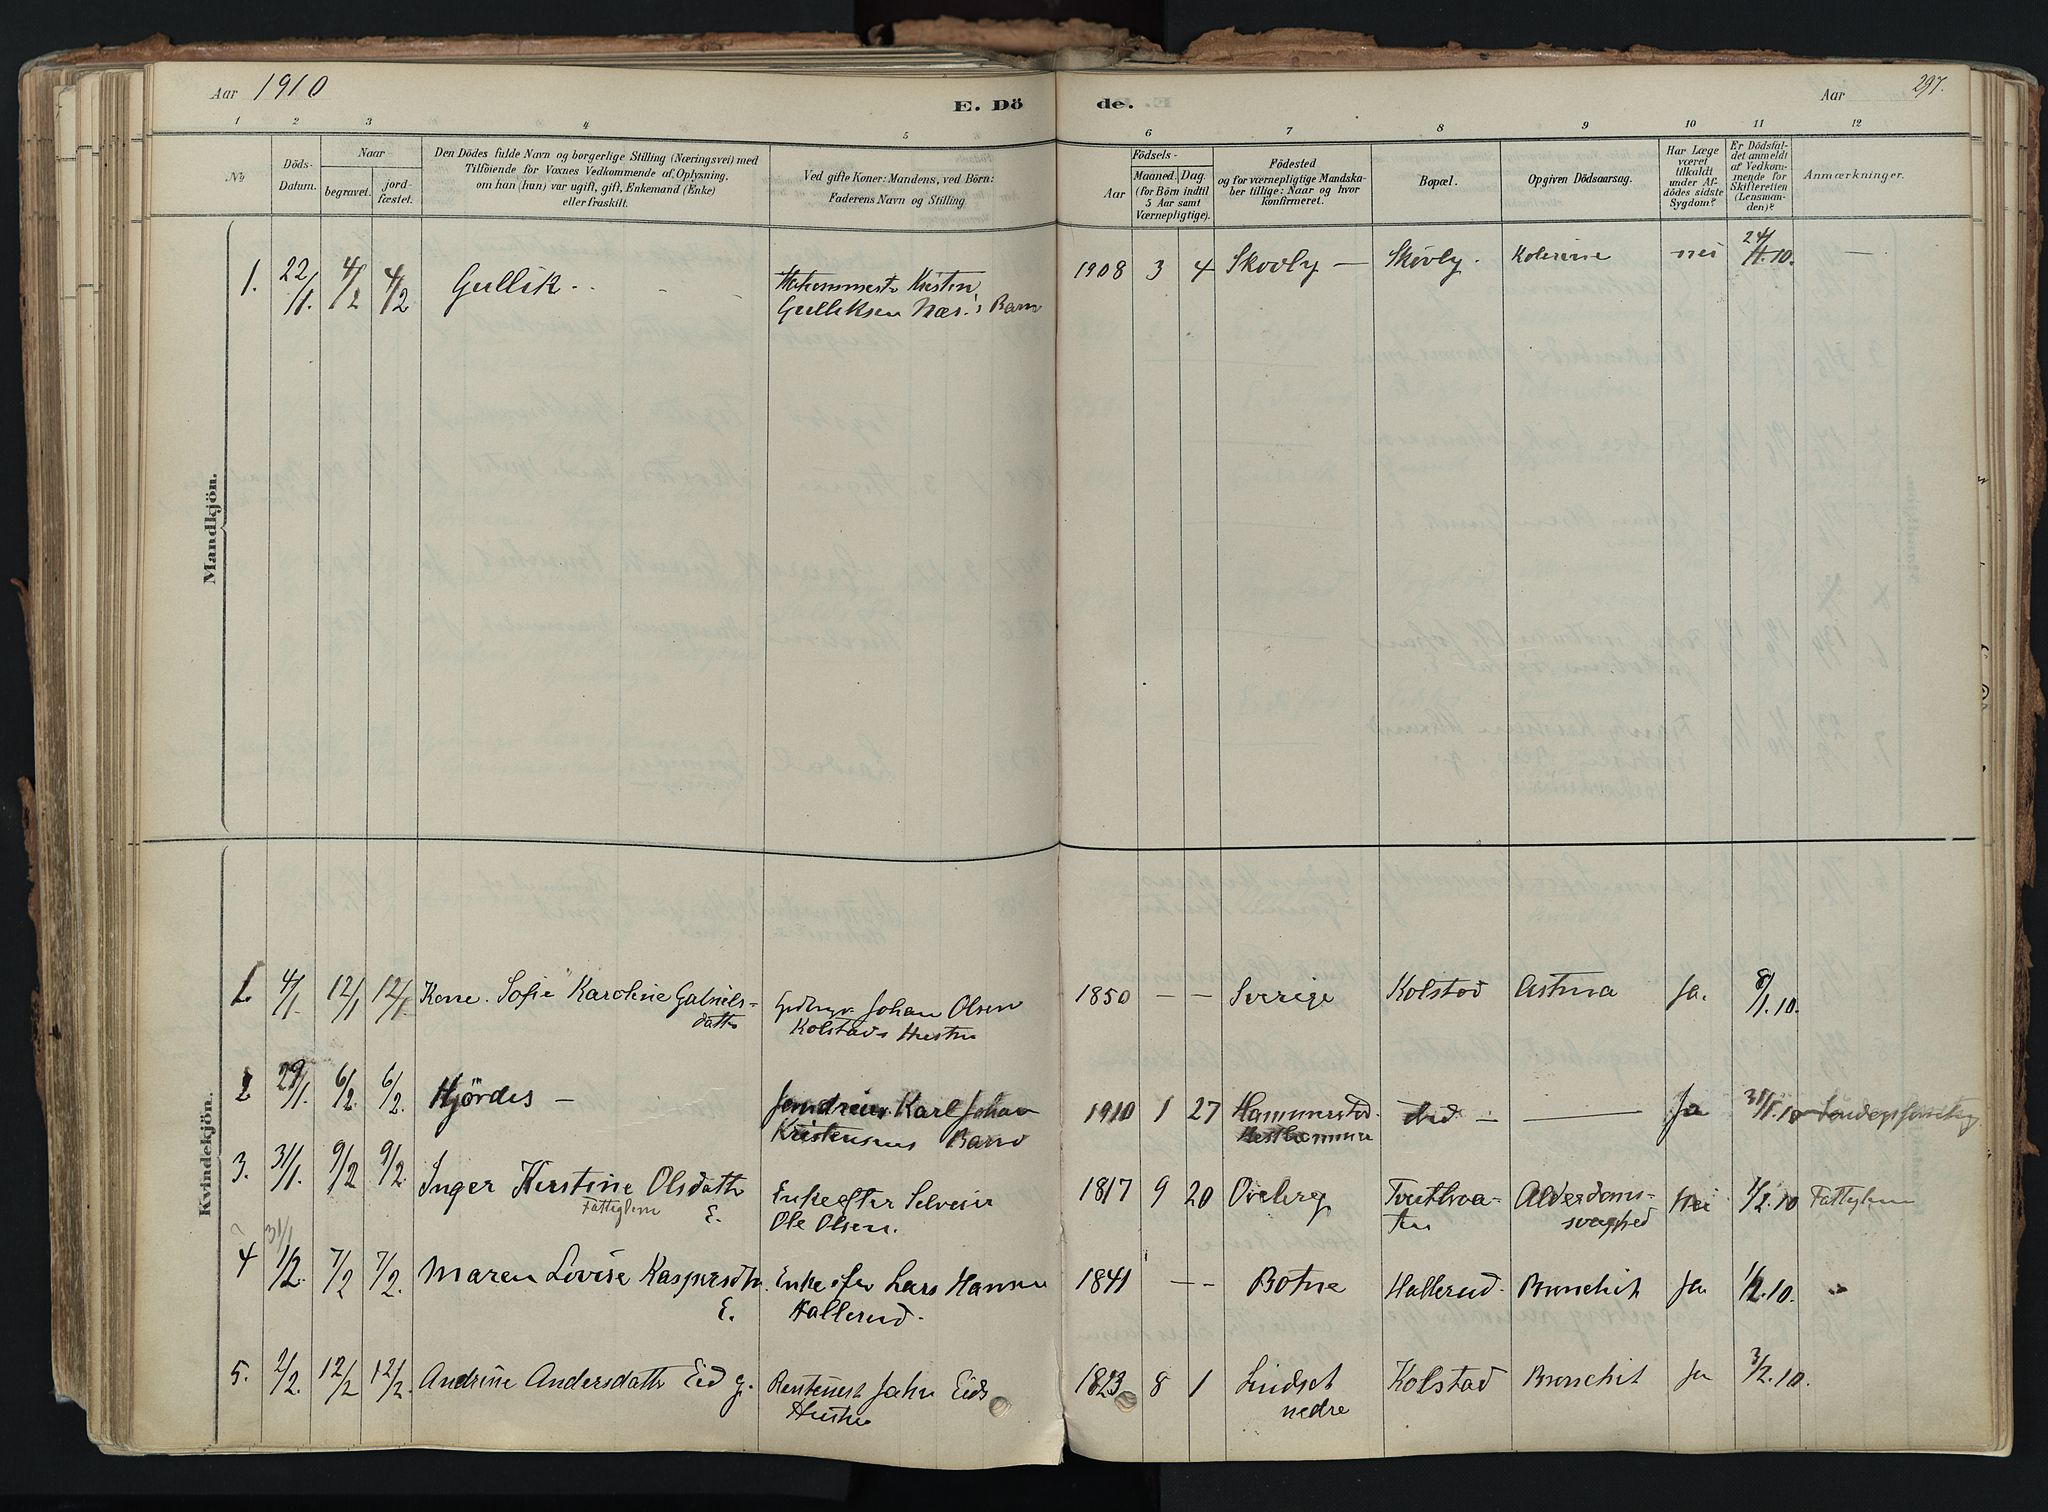 Aar 1910
E. Döde.
Aar
297.
1 2 3 4 5 6 7 8 9 10 11 12
No
Döds-Datum.
Naar
begravet.
jord-fæstet.
Den Dödes fulde Navn og borgerlige Stilling (Næringsvei) med
Tilföiende for Voxnes Vedkommende af Oplysning,
om han (hun) var ugift, gift, Enkemand (Enke)
eller fraskilt.
Ved gifte Koner: Mandens, ved Börn:
Faderens Navn og Stilling
Födsels-
Aar
Maaned. Dag.
(for Börn indtil
5 Aar samt
Værnepligtige).
Födested
og for værnepligtige Mandska-
ber tillige: Naar og hvor
konfirmeret.
Bopæl.
Opgiven Dödsaarsag.
Har Læge
været
tilkaldt
under Af-
dödes sidste
Sygdom?
Er Dödsfal-
det anmeldt
af Vedkom-
mende for
Skifteretten
(Lensman-
den)?
Anmærkninger.
Mandkjön.
1. 22/1. 4/2 4/2 Gullik Kristen 1908 3 4 Skovly — Skovly. Kolerine nei 24/1.10. —
Gulliksen Næs's Barn
Kvindekjön.
1. 4/1. 12/1 12/1 Kone Sofie Karoline Gabriels- Johan Olsen 1850 — — Sverige Kolstad Astma Ja. 8/1.10.
datter Kolstads Hustru
2. 29/1. 6/2. 6/2. Hjördes — Karl Johan 1910 1 27 Hammerstad. — Ja 31/1.10
Kristensens Barn
3. 31/1. 9/2 9/2. Inger Kirstine Olsdatter Enke efter Selveier 1817 9 20 Overberg Alderdoms- nei 1/2.10 Fattiglem
Fattiglem E. Ole Olsen. svaghed
31/1
4 1/2. 7/2 7/2. Maren Lovise Kaspersdtr. Enke efter Lars Hansen 1841 — — Botne Hallerud. Bronchit Ja 1/2.10.
E. Hallerud.
5. 2/2. 12/2 12/2. Andrine Andersdatter Eid g. Rentenist John Eids 1823 8 1 Lindset Kolstad Bronchit Ja 3/2.10.
Hustru nedre